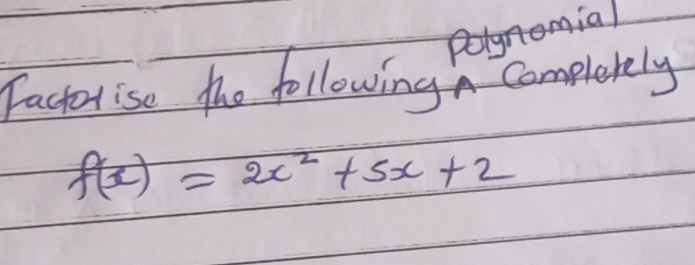 Factorise the following polynomial Completely
f(x) = 2x² + 5x + 2